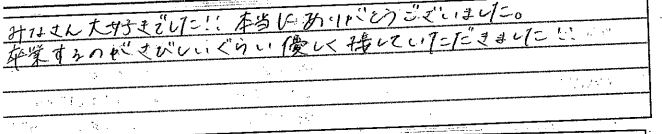 みなさん大好きでした!! 本当にありがとうございました。
卒業するのがさびしいぐらい優しく接していただきました!!